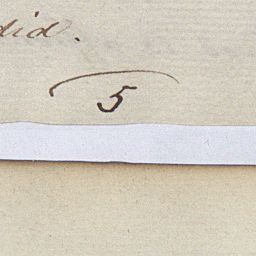 did.
5